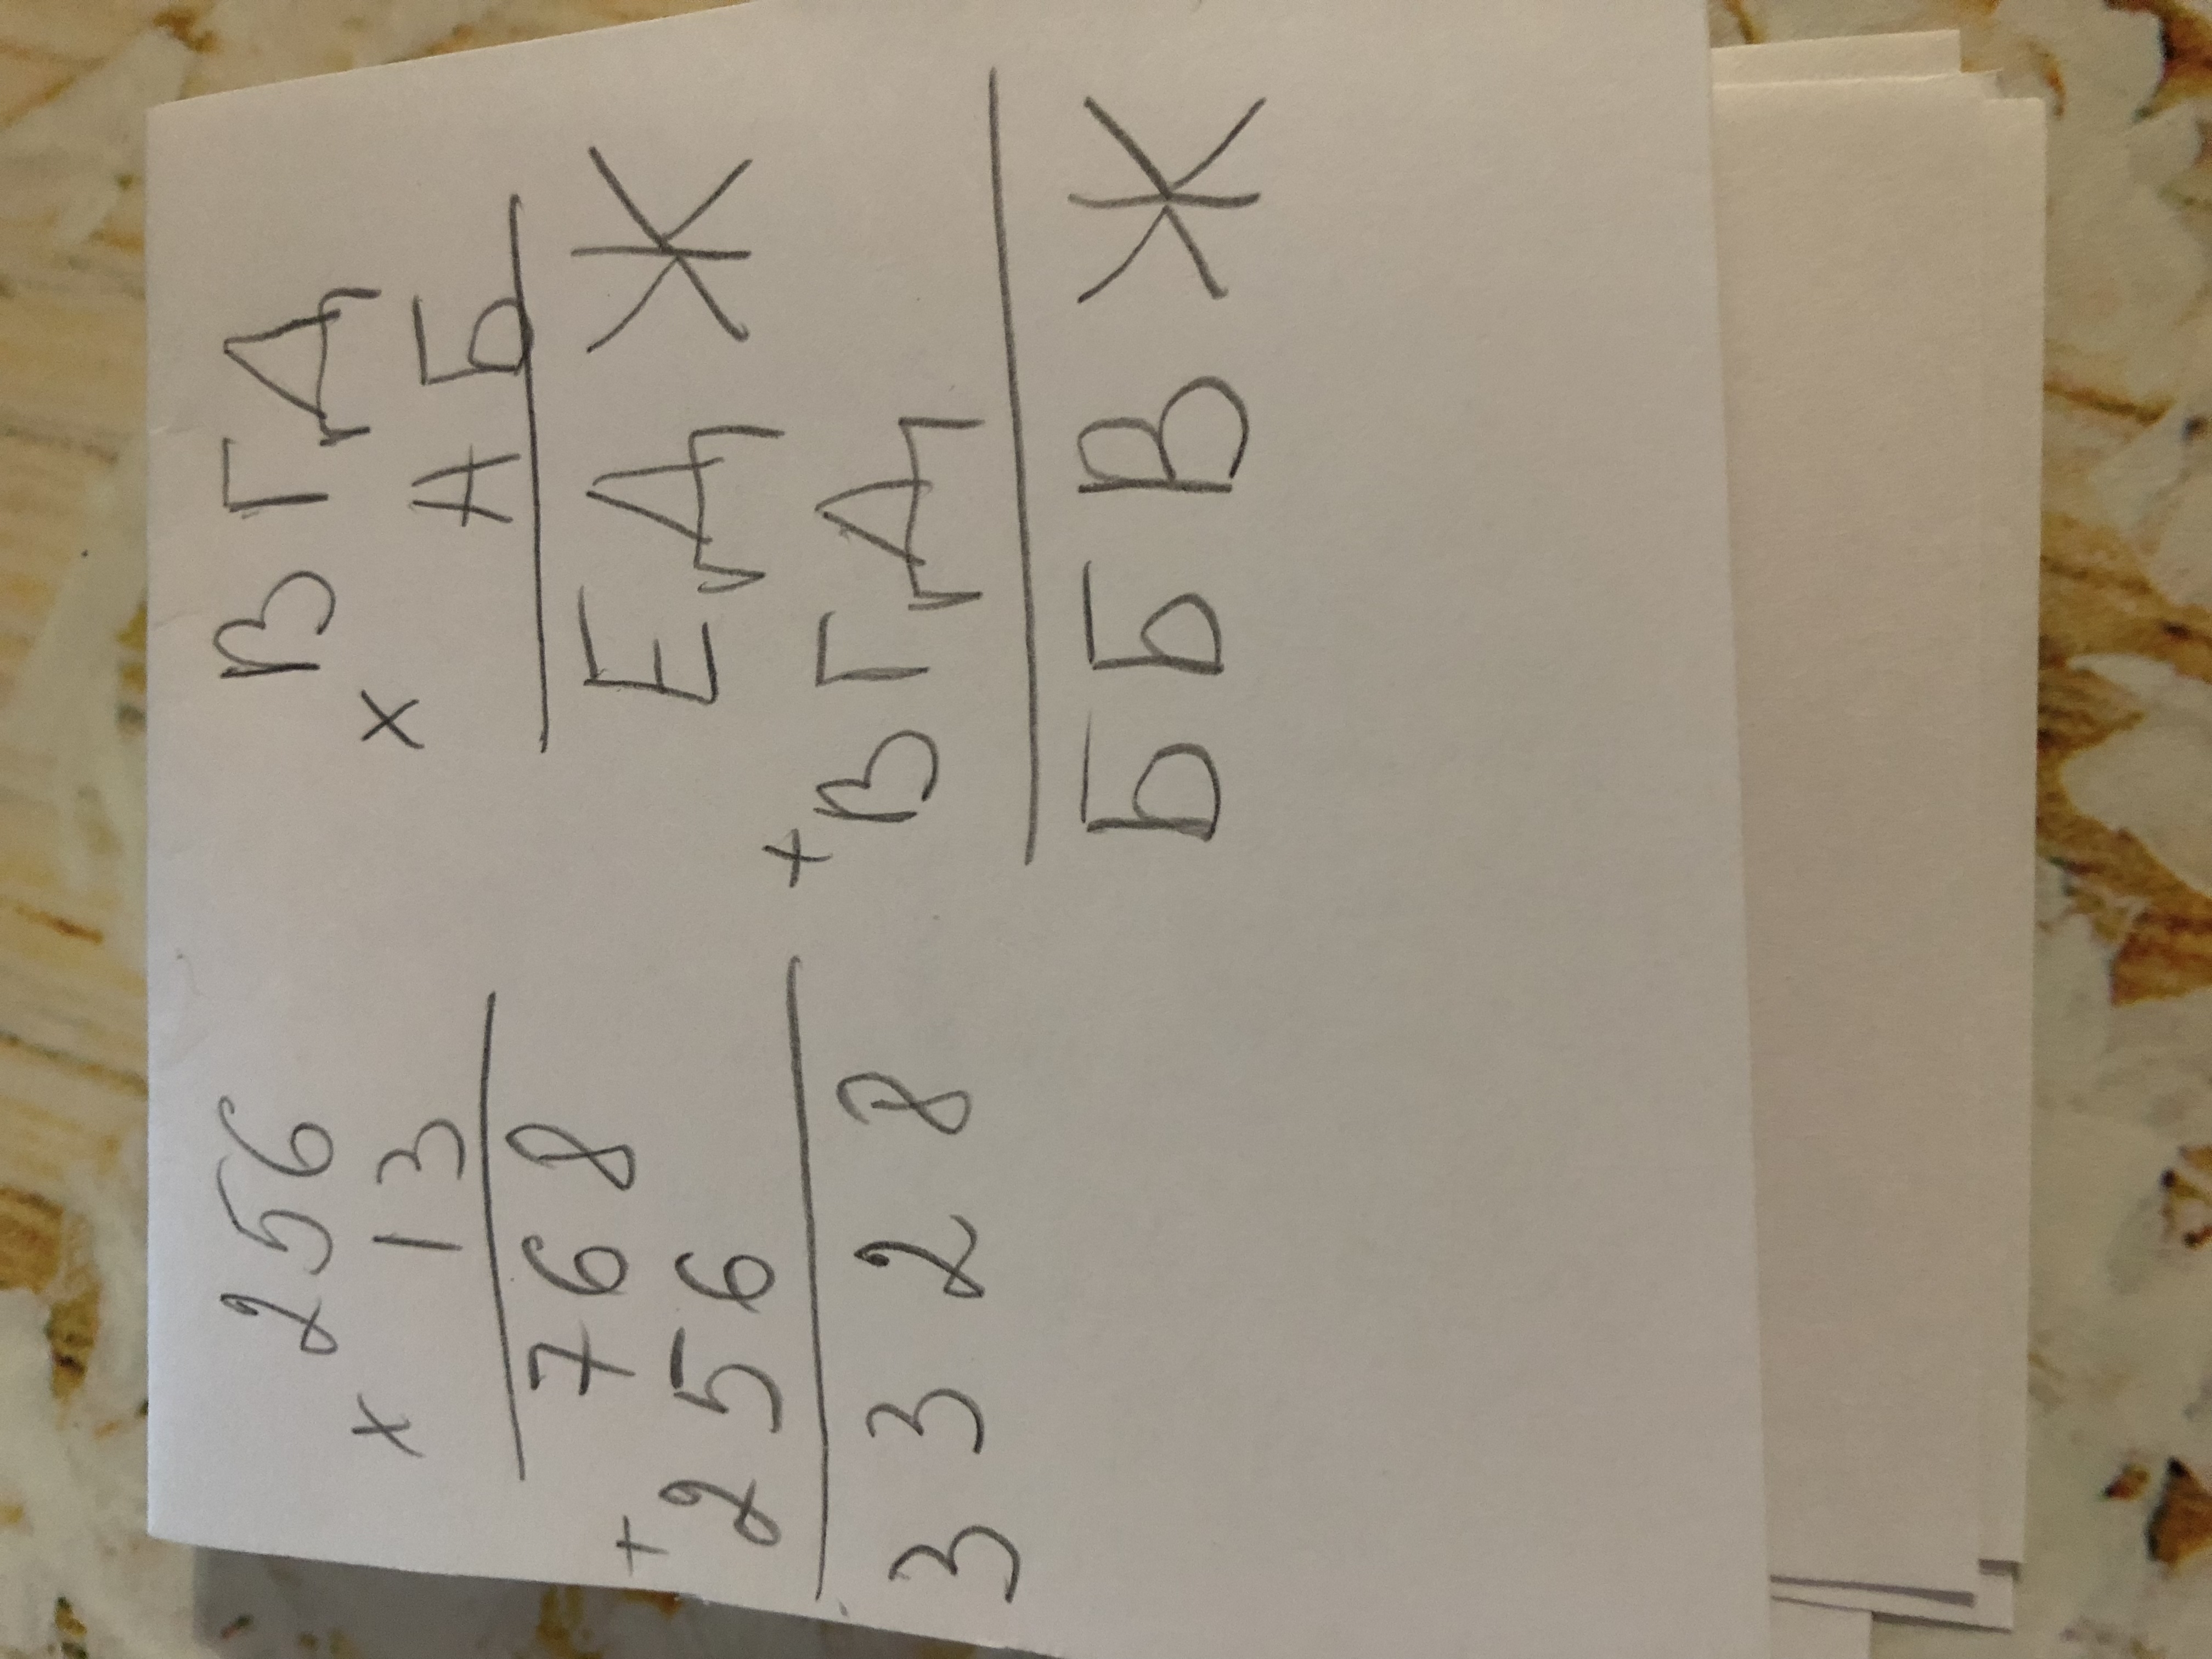 256
× 13
768
+ 256
3328
ВГД
× АБ
ЕДЖ
+ ВГД
ББВЖ